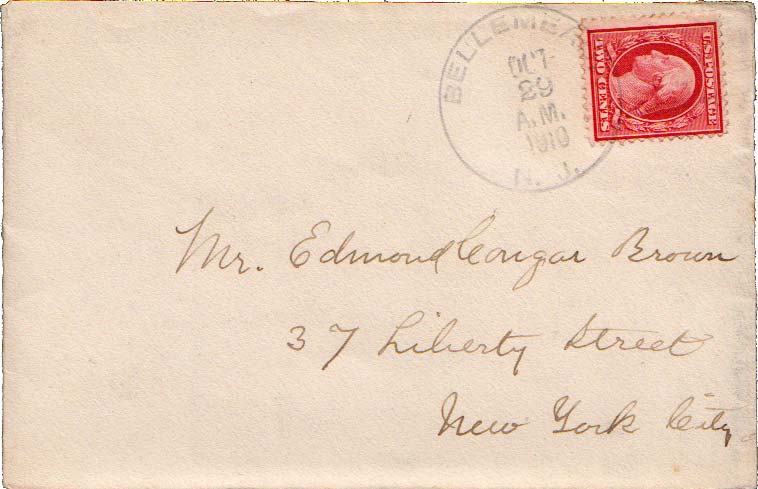 BELLEMEA
OCT
29
A.M.
1910
N. J.
U.S. POSTAGE
TWO CENTS
Mr. Edmond Congar Brown
37 Liberty Street
New York City